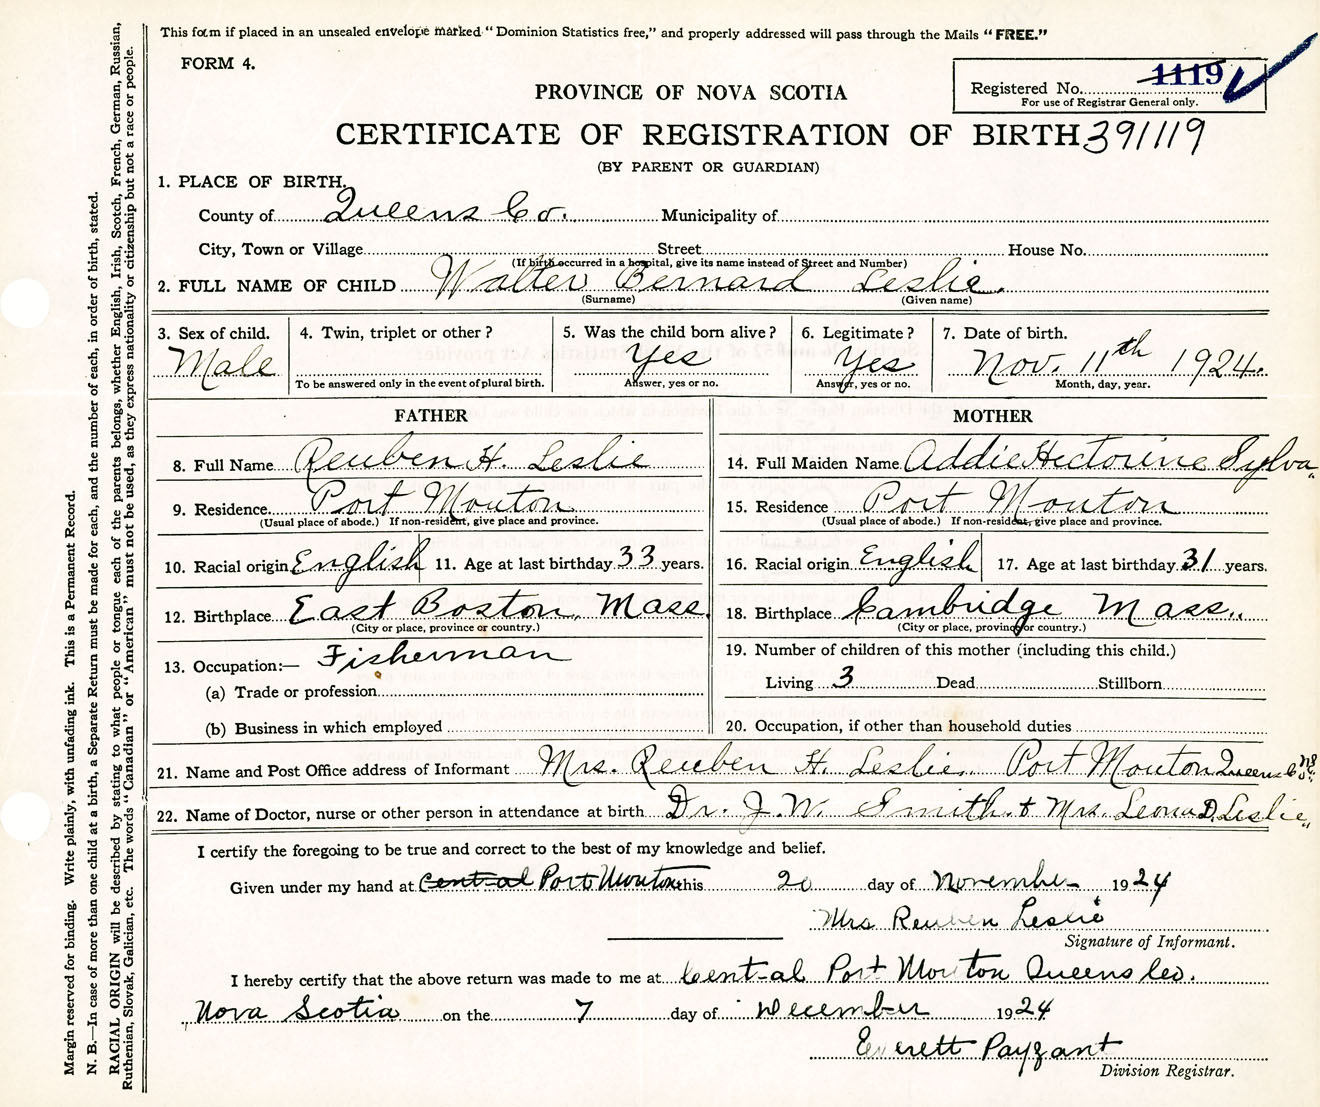 This form if placed in an unsealed envelope marked "Dominion Statistics free," and properly addressed will pass through the Mails "FREE."
FORM 4.
1119
Registered No.
For use of Registrar General only.
PROVINCE OF NOVA SCOTIA
CERTIFICATE OF REGISTRATION OF BIRTH 391119
(BY PARENT OR GUARDIAN)
1. PLACE OF BIRTH.
County of Queens Co. Municipality of
City, Town or Village Street House No.
(If birth occurred in a hospital, give its name instead of Street and Number)
2. FULL NAME OF CHILD Walter Bernard Leslie.
(Surname) (Given name)
3. Sex of child. 4. Twin, triplet or other? 5. Was the child born alive? 6. Legitimate? 7. Date of birth.
Male Yes Yes Nov. 11th 1924.
To be answered only in the event of plural birth. Answer, yes or no. Answer, yes or no. Month, day, year.
FATHER MOTHER
8. Full Name Reuben H. Leslie 14. Full Maiden Name Addie Hectorine Sylva
9. Residence. Port Mouton 15. Residence Port Mouton
(Usual place of abode.) If non-resident, give place and province. (Usual place of abode.) If non-resident, give place and province.
10. Racial origin English 11. Age at last birthday 33 years. 16. Racial origin English 17. Age at last birthday 31 years.
12. Birthplace East Boston, Mass. 18. Birthplace Cambridge Mass.
(City or place, province or country.) (City or place, province or country.)
13. Occupation:— Fisherman 19. Number of children of this mother (including this child.)
(a) Trade or profession Living 3 Dead Stillborn
(b) Business in which employed 20. Occupation, if other than household duties
21. Name and Post Office address of Informant Mrs. Reuben H. Leslie. Port Mouton Queens Co. N.S.
22. Name of Doctor, nurse or other person in attendance at birth Dr. J. W. Smith. & Mrs. Leona D. Leslie
I certify the foregoing to be true and correct to the best of my knowledge and belief.
Given under my hand at Central Port Mouton this 20 day of November 1924
Mrs Reuben Leslie
Signature of Informant.
I hereby certify that the above return was made to me at Central Port Mouton Queens Co.
Nova Scotia on the 7 day of December 1924
Everett Payzant
Division Registrar.
Margin reserved for binding. Write plainly, with unfading ink. This is a Permanent Record.
N. B.—In case of more than one child at a birth, a Separate Return must be made for each, and the number of each, in order of birth, stated.
RACIAL ORIGIN will be described by stating to what people or tongue each of the parents belongs, whether English, Irish, Scotch, French, German, Russian,
Ruthenian, Slovak, Galician, etc. The words "Canadian" or "American" must not be used, as they express nationality or citizenship but not a race or people.